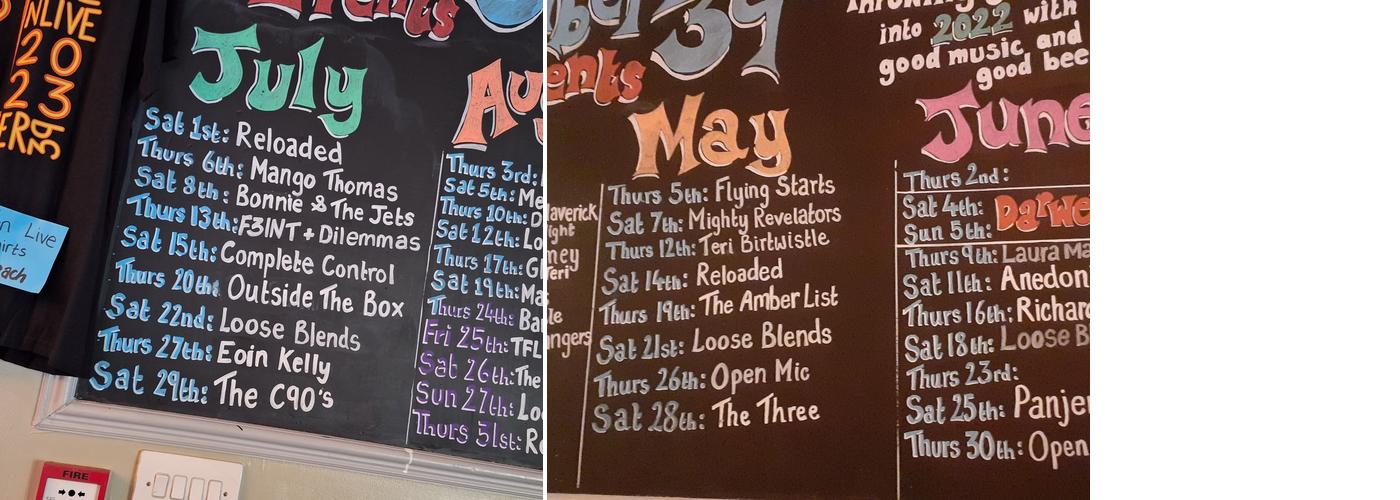 NLIVE
2 0
2 3
ERS
n Live
irts
each
Events
July
Sat 1st: Reloaded
Thurs 6th: Mango Thomas
Sat 8th: Bonnie & The Jets
Thurs 13th: F3INT + Dilemmas
Sat 15th: Complete Control
Thurs 20th: Outside The Box
Sat 22nd: Loose Blends
Thurs 27th: Eoin Kelly
Sat 29th: The C90's
Aug
Thurs 3rd:
Sat 5th: Me
Thurs 10th: D
Sat 12th: Lo
Thurs 17th: Gl
Sat 19th: Ma
Thurs 24th: Ba
Fri 25th: TFL
Sat 26th: The
Sun 27th: Lo
Thurs 31st: Re
FIRE
ber 39
ents
May
Thurs 5th: Flying Starts
Sat 7th: Mighty Revelators
Thurs 12th: Teri Birtwistle
Sat 14th: Reloaded
Thurs 19th: The Amber List
Sat 21st: Loose Blends
Thurs 26th: Open Mic
Sat 28th: The Three
laverick
ight
ney
Teri
le
ngers
into 2022 with
good music and
good bee
June
Thurs 2nd:
Sat 4th: Darwe
Sun 5th:
Thurs 9th: Laura Ma
Sat 11th: Anedon
Thurs 16th: Richard
Sat 18th: Loose B
Thurs 23rd:
Sat 25th: Panje
Thurs 30th: Open